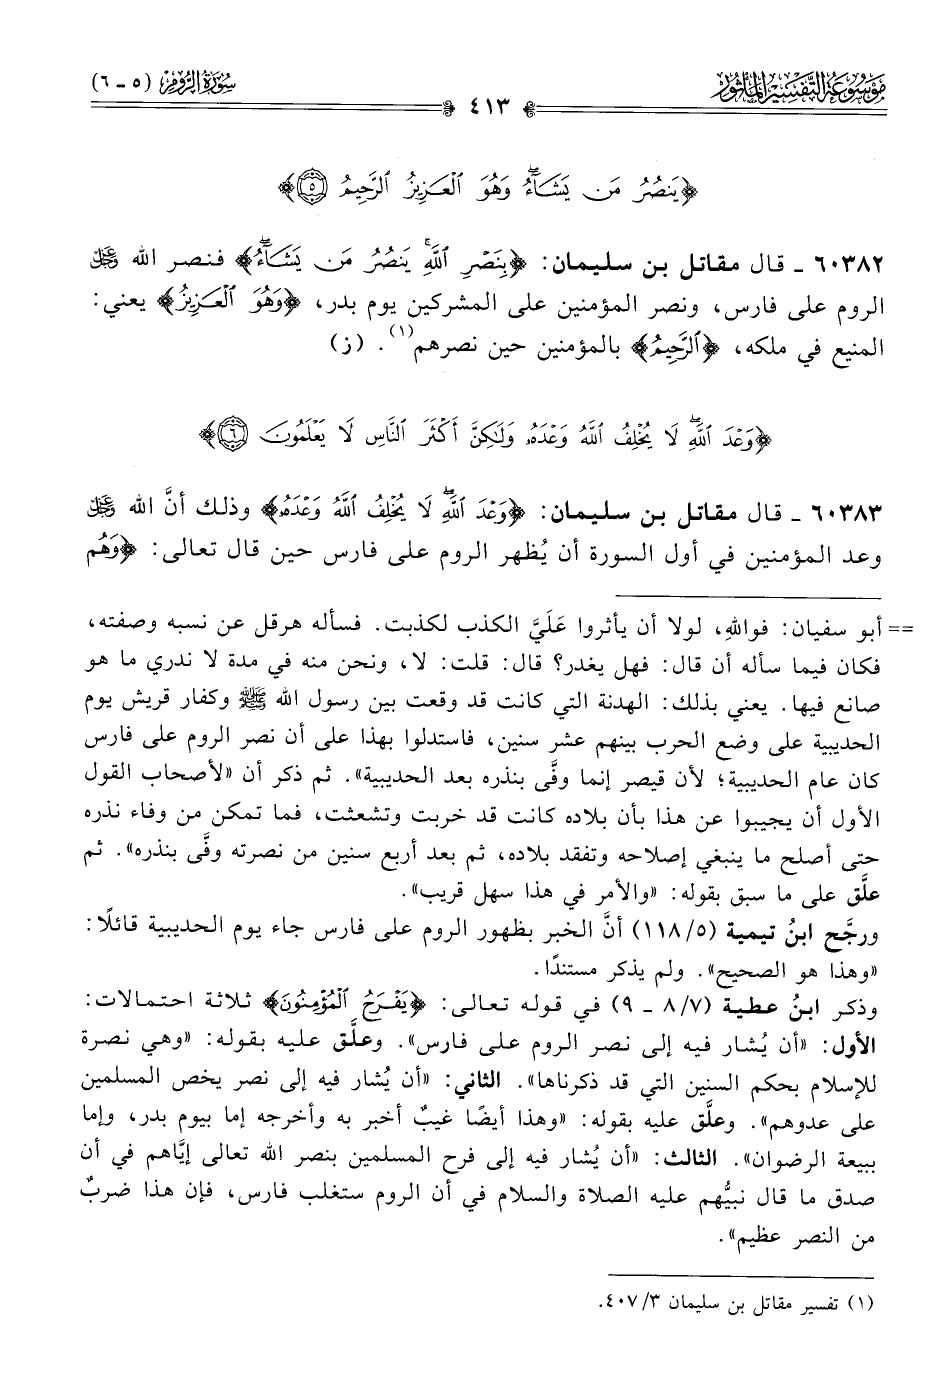 موسوعة التفسير المأثور
سورة الروم (٥ - ٦)
٤١٣
﴿يَنصُرُ مَن يَشَآءُۖ وَهُوَ ٱلْعَزِيزُ ٱلرَّحِيمُ ٥﴾
٦٠٣٨٢ - قال مقاتل بن سليمان: ﴿بِنَصْرِ ٱللَّهِۚ يَنصُرُ مَن يَشَآءُۖ﴾ فنصر الله عزوجل
الروم على فارس، ونصر المؤمنين على المشركين يوم بدر، ﴿وَهُوَ ٱلْعَزِيزُ﴾ يعني:
المنيع في ملكه، ﴿ٱلرَّحِيمُ﴾ بالمؤمنين حين نصرهم(١). (ز)
﴿وَعْدَ ٱللَّهِۖ لَا يُخْلِفُ ٱللَّهُ وَعْدَهُۥ وَلَٰكِنَّ أَكْثَرَ ٱلنَّاسِ لَا يَعْلَمُونَ ٦﴾
٦٠٣٨٣ - قال مقاتل بن سليمان: ﴿وَعْدَ ٱللَّهِۖ لَا يُخْلِفُ ٱللَّهُ وَعْدَهُۥ﴾ وذلك أنَّ الله عزوجل
وعد المؤمنين في أول السورة أن يُظهر الروم على فارس حين قال تعالى: ﴿وَهُم
== أبو سفيان: فواللهِ، لولا أن يأثروا عَلَيَّ الكذب لكذبت. فسأله هرقل عن نسبه وصفته،
فكان فيما سأله أن قال: فهل يغدر؟ قال: قلت: لا، ونحن منه في مدة لا ندري ما هو
صانع فيها. يعني بذلك: الهدنة التي كانت قد وقعت بين رسول الله ﷺ وكفار قريش يوم
الحديبية على وضع الحرب بينهم عشر سنين، فاستدلوا بهذا على أن نصر الروم على فارس
كان عام الحديبية؛ لأن قيصر إنما وفَّى بنذره بعد الحديبية». ثم ذكر أن «لأصحاب القول
الأول أن يجيبوا عن هذا بأن بلاده كانت قد خربت وتشعثت، فما تمكن من وفاء نذره
حتى أصلح ما ينبغي إصلاحه وتفقد بلاده، ثم بعد أربع سنين من نصرته وفَّى بنذره». ثم
علَّق على ما سبق بقوله: «والأمر في هذا سهل قريب».
ورجَّح ابنُ تيمية (١١٨/٥) أنَّ الخبر بظهور الروم على فارس جاء يوم الحديبية قائلًا:
«وهذا هو الصحيح». ولم يذكر مستندًا.
وذكر ابنُ عطية (٨/٧ - ٩) في قوله تعالى: ﴿يَفْرَحُ ٱلْمُؤْمِنُونَ﴾ ثلاثة احتمالات:
الأول: «أن يُشار فيه إلى نصر الروم على فارس». وعلَّق عليه بقوله: «وهي نصرة
للإسلام بحكم السنين التي قد ذكرناها». الثاني: «أن يُشار فيه إلى نصر يخص المسلمين
على عدوهم». وعلَّق عليه بقوله: «وهذا أيضًا غيبٌ أخبر به وأخرجه إما بيوم بدر، وإما
ببيعة الرضوان». الثالث: «أن يُشار فيه إلى فرح المسلمين بنصر الله تعالى إيَّاهم في أن
صدق ما قال نبيُّهم عليه الصلاة والسلام في أن الروم ستغلب فارس، فإن هذا ضربٌ
من النصر عظيم».
(١) تفسير مقاتل بن سليمان ٤٠٧/٣.